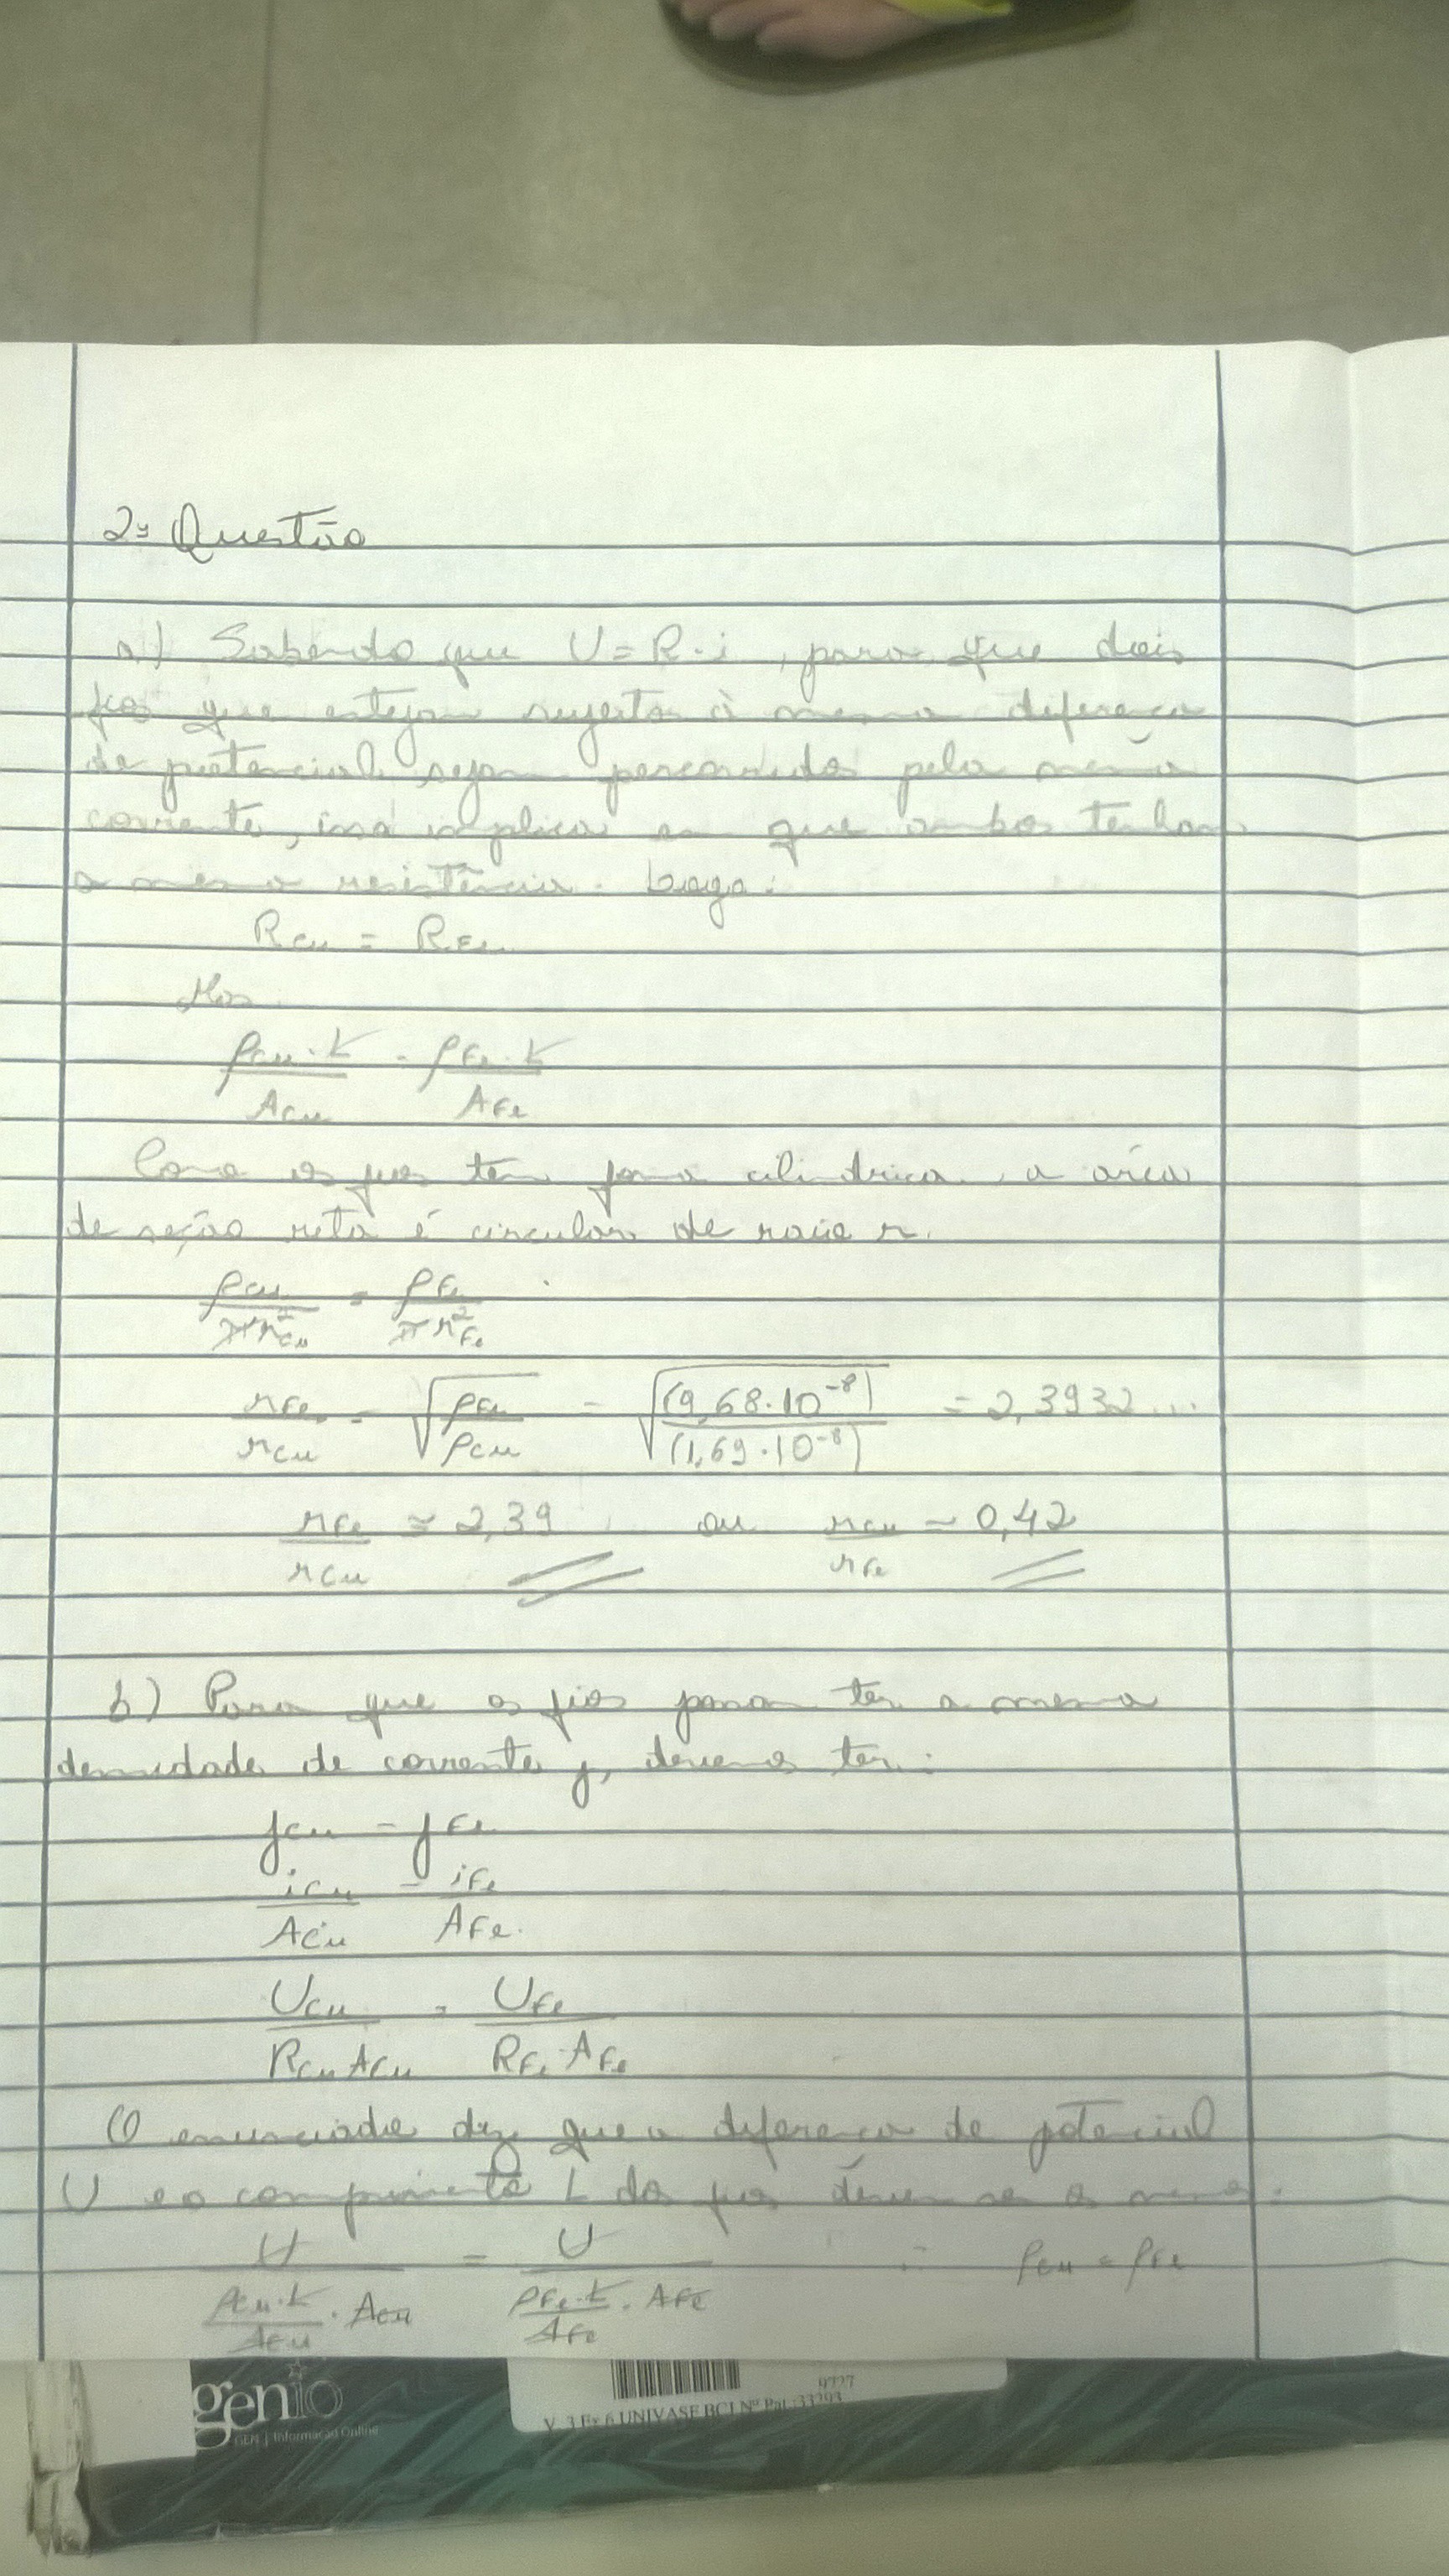 2ª Questão
a) Sabendo que U = R·i, para que dois
fios que estejam sujeitos à mesma diferença
de potencial, sejam percorridos pela mesma
corrente, isso implica em que ambos tenham
a mesma resistência. Logo:
RCu = RFe
Mas
ρCu·L / ACu = ρFe·L / AFe
Como os fios tem forma cilíndrica, a área
de seção reta é circular de raio r.
ρCu / πr²Cu = ρFe / πr²Fe
rFe / rCu = √(ρFe / ρCu) = √((9,68·10⁻⁸) / (1,69·10⁻⁸)) = 2,3932...
rFe / rCu ≈ 2,39 ou rCu / rFe ≈ 0,42
b) Para que os fios possam ter a mesma
densidade de corrente j, devemos ter:
jCu = jFe
iCu / ACu = iFe / AFe
UCu / RCu·ACu = UFe / RFe·AFe
O enunciado diz que a diferença de potencial
U e o comprimento L dos fios devem ser os mesmos:
U / (ρCu·L / ACu · ACu) = U / (ρFe·L / AFe · AFe) ∴ ρCu = ρFe
genio
GEN | Informação Online
9727
V. 3 Ex 6 UNIVASF BCJ Nº Pat.:33293